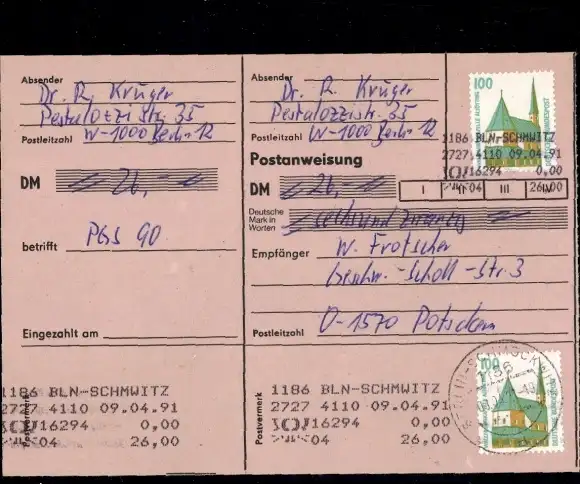 Absender
Dr. R. Krüger
Pestalozzistr. 35
Postleitzahl W-1000 Berlin 12
DM = 26,- =
betrifft PGS 90
Eingezahlt am
Postvermerk
1186 BLN-SCHMWITZ
2727 4110 09.04.91
16294 0,00
04 26,00
Absender
Dr. R. Krüger
Pestalozzistr. 35
Postleitzahl W-1000 Berlin 12
Postanweisung
DM = 26,- =
I II III IV
Deutsche
Mark in
Worten
= sechsundzwanzig =
Empfänger W. Frotscher
Geschw.-Scholl-Str. 3
Postleitzahl O-1570 Potsdam
Postvermerk
1186 BLN-SCHMWITZ
2727 4110 09.04.91
16294 0,00
04 26,00
100
1186 BLN-SCHMWITZ
2727 4110 09.04.91
16294 0,00
04 26,00
100
1156